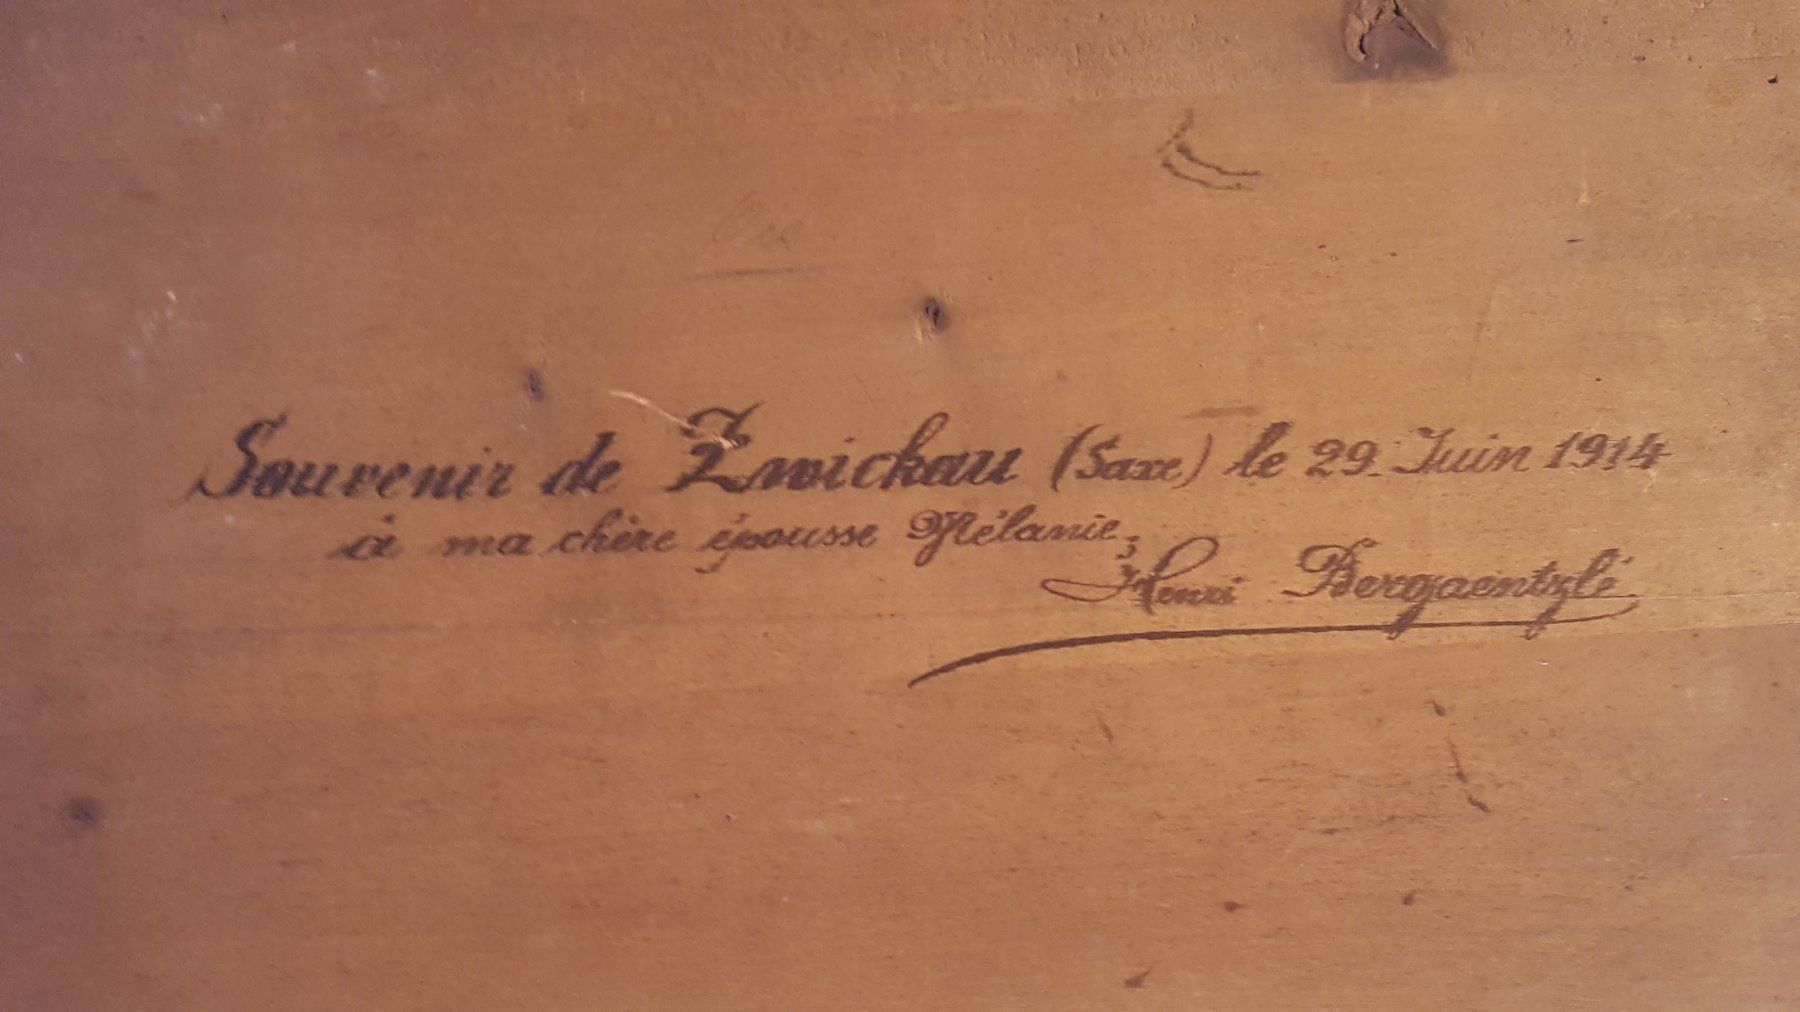 Souvenir de Zwickau (Saxe) le 29 Juin 1914
à ma chère épouse Mélanie,
Henri Bergaentzlé